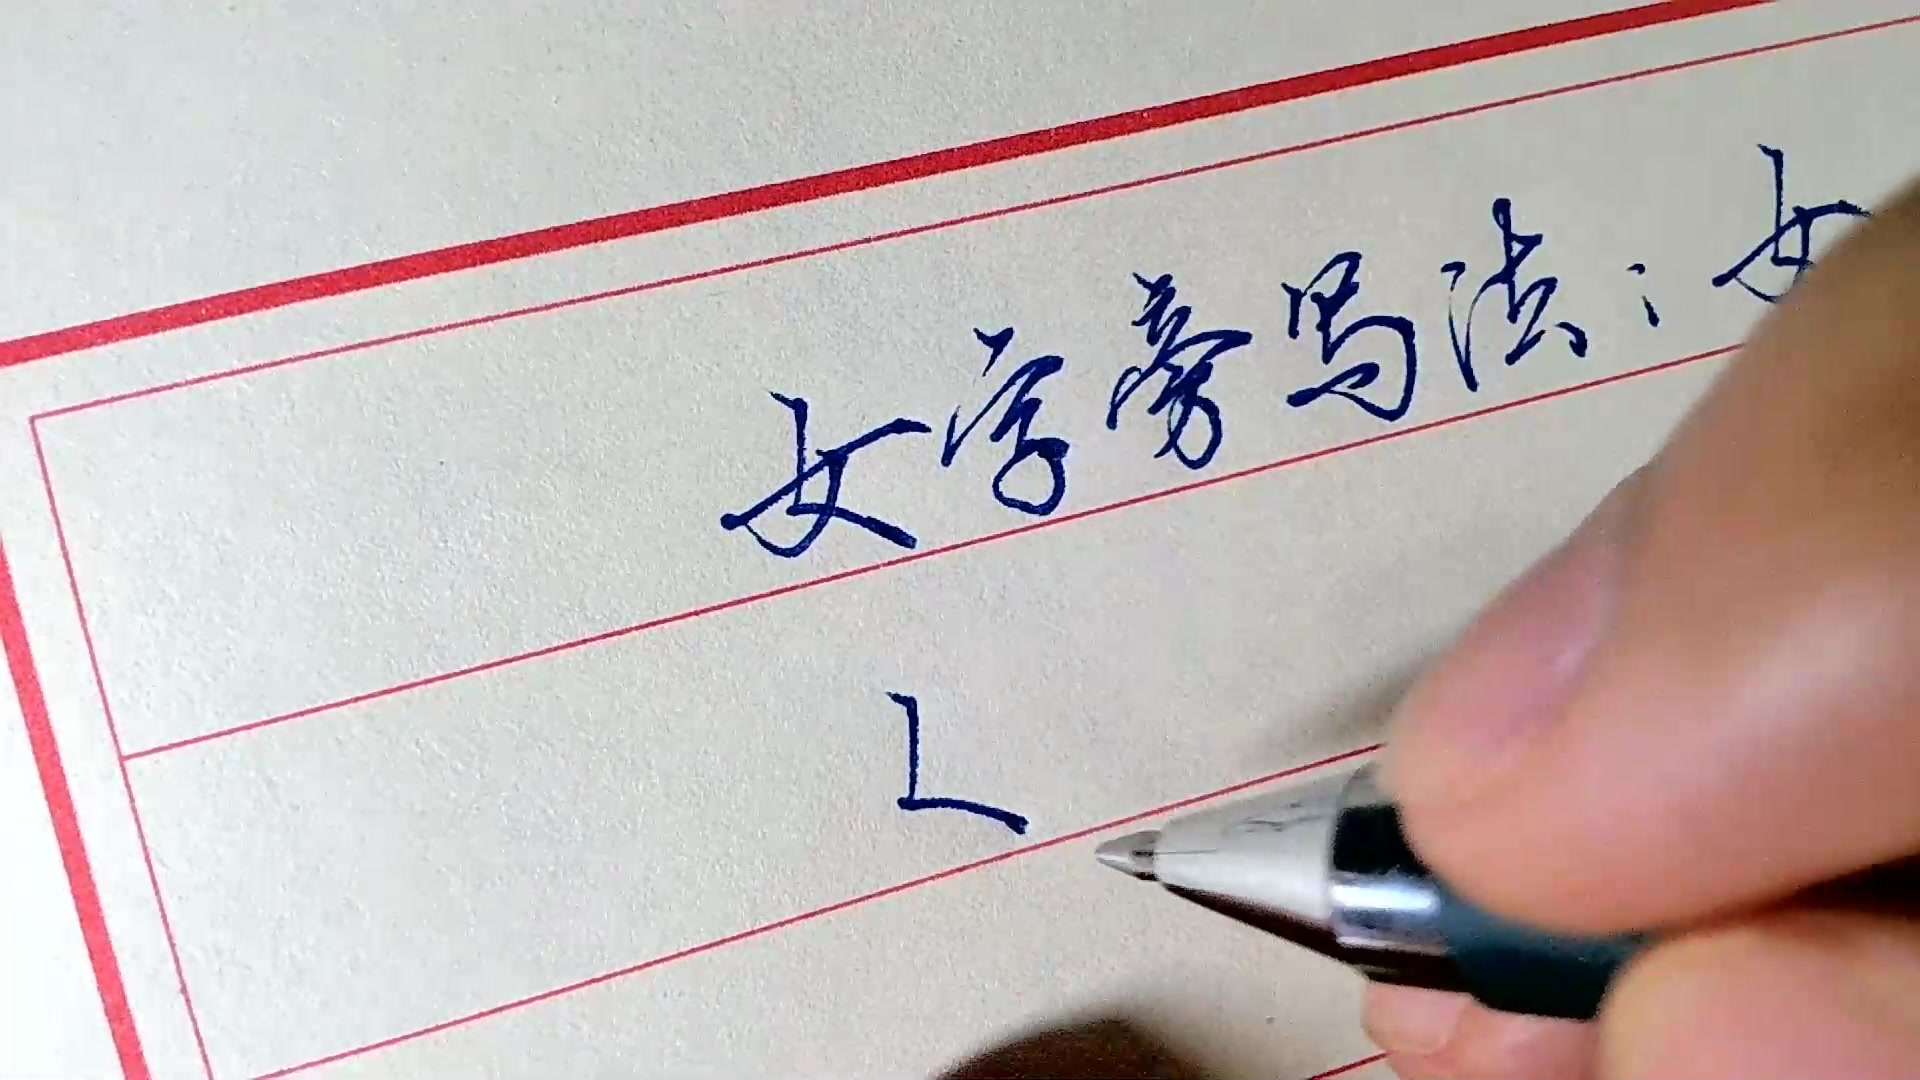 女字旁写法：女